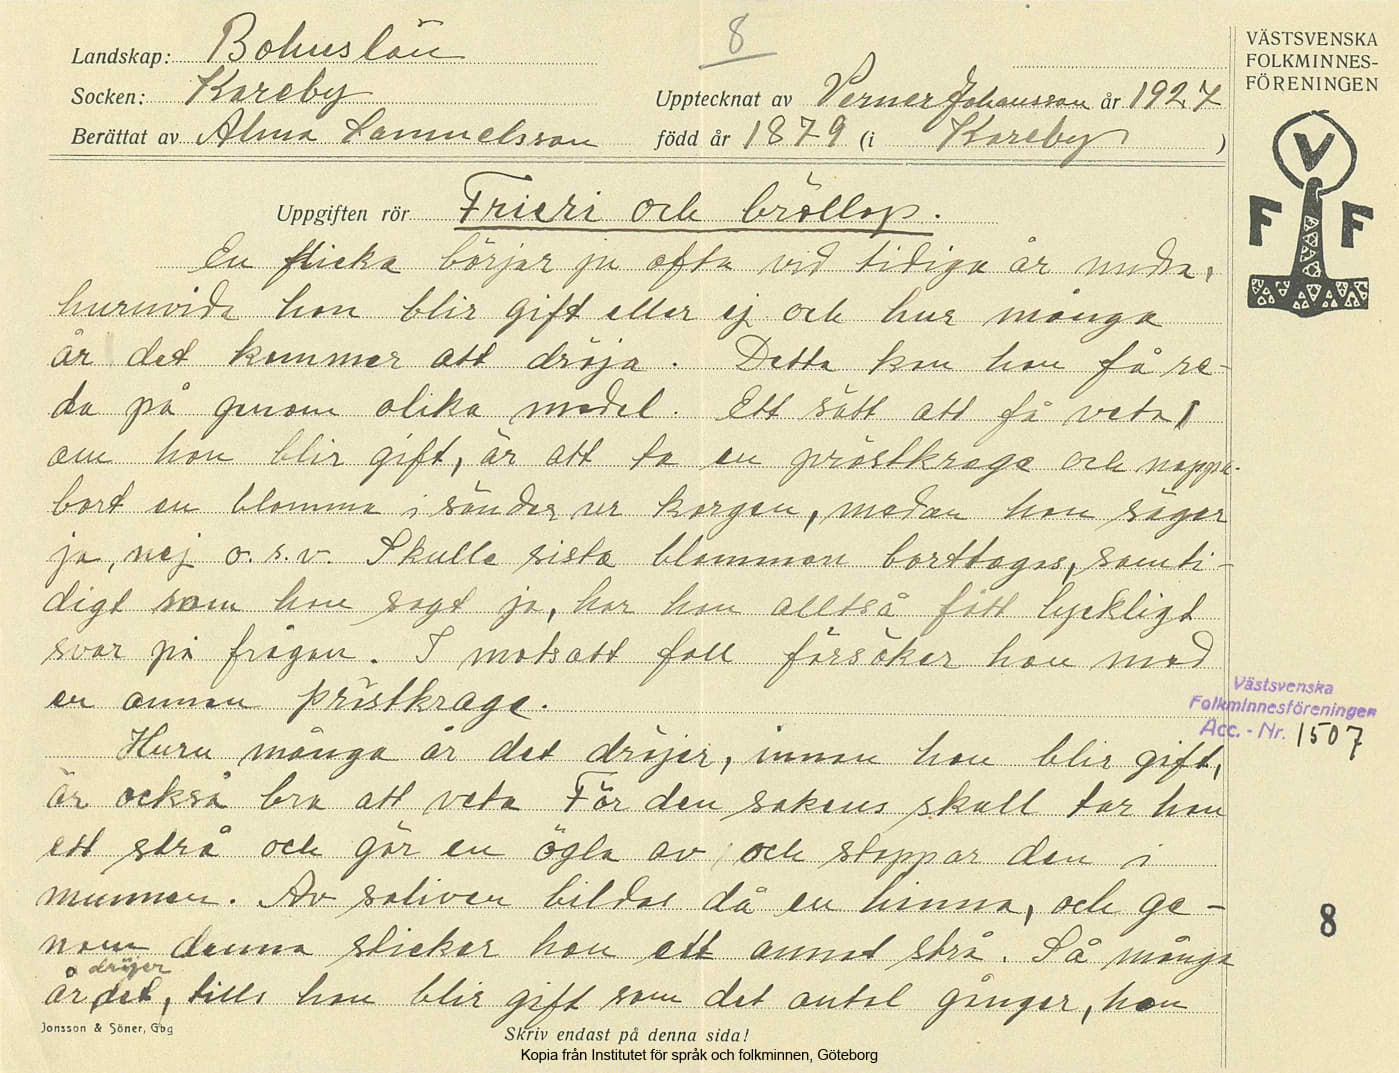 8
Landskap: Bohuslän
Socken: Kareby
Upptecknat av Verner Johansson år 1927
Berättat av Alma Samuelsson född år 1879 (i Kareby)
VÄSTSVENSKA
FOLKMINNES-
FÖRENINGEN
V
F F
Uppgiften rör Frieri och bröllop.
En flicka börjar ju ofta vid tidiga år undra,
huruvida hon blir gift eller ej och hur många
år det kommer att dröja. Detta kan hon få re-
da på genom olika medel. Ett sätt att få veta,
om hon blir gift, är att ta en prästkrage och nappa
bort en blomma i sönder ur korgen, medan hon säger
ja, nej o.s.v. Skulle sista blomman borttagas, samti-
digt som hon sagt ja, har hon alltså fått lyckligt
svar på frågan. I motsatt fall försöker hon med
en annan prästkrage.
Västsvenska
Folkminnesföreningen
Acc.-Nr. 1507
Huru många år det dröjer, innan hon blir gift,
är också bra att veta För den sakens skull tar hon
ett strå och gör en ögla av och stoppar den i
munnen. Av saliven bildas då en hinna, och ge-
nom denna sticker hon ett annat strå. Så många
år dröjer det, tills hon blir gift som det antal gånger, hon
8
Jonsson & Söner, Gbg
Skriv endast på denna sida!
Kopia från Institutet för språk och folkminnen, Göteborg